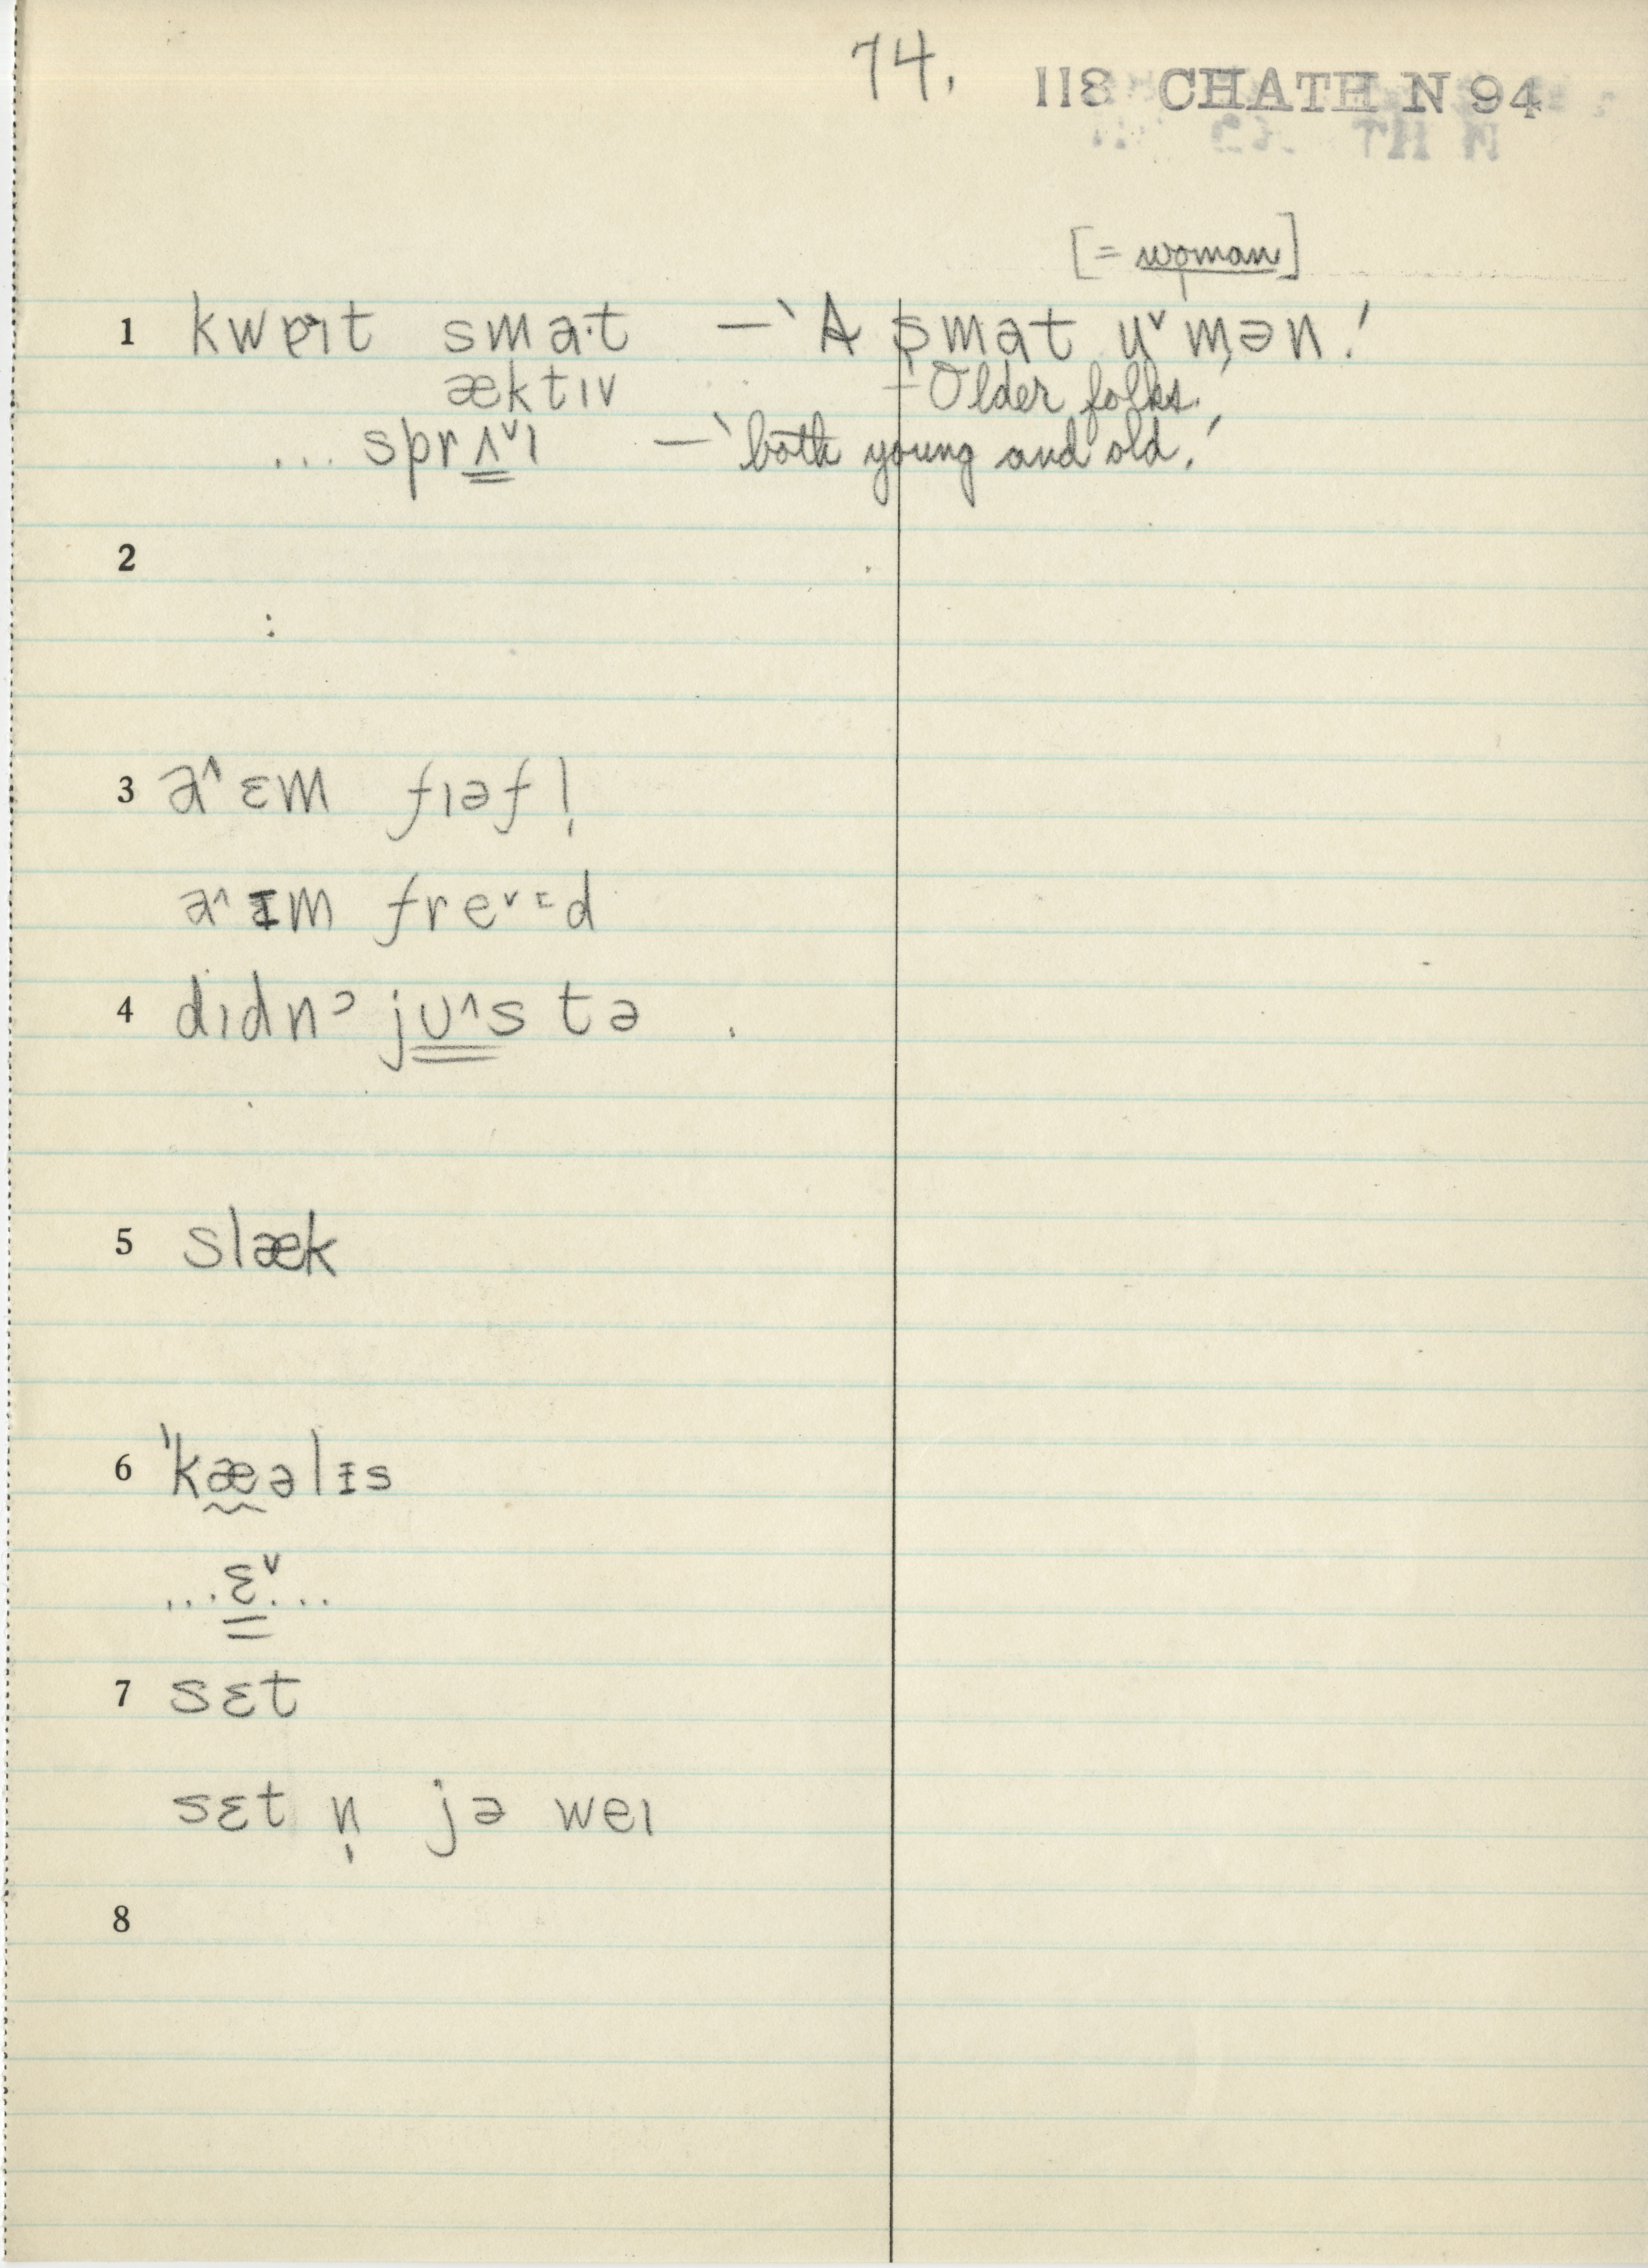 74.
118 CHATH N 94
[= woman]
1 kweɪt smat —‛A smat ᴜ˅mən.’
æktɪv – Older folks.’
... sprʌ˅ɪ —‛both young and old.’
2
:
3 a^ɛm fɪəfl̩
a^ɪm fre˅ɪd
4 dɪdnˀ jᴜ^s tə
5 slæk
6 ˈkæəlɪs
...ɛ˅...
7 sɛt
sɛt n̩ jə weɪ
8